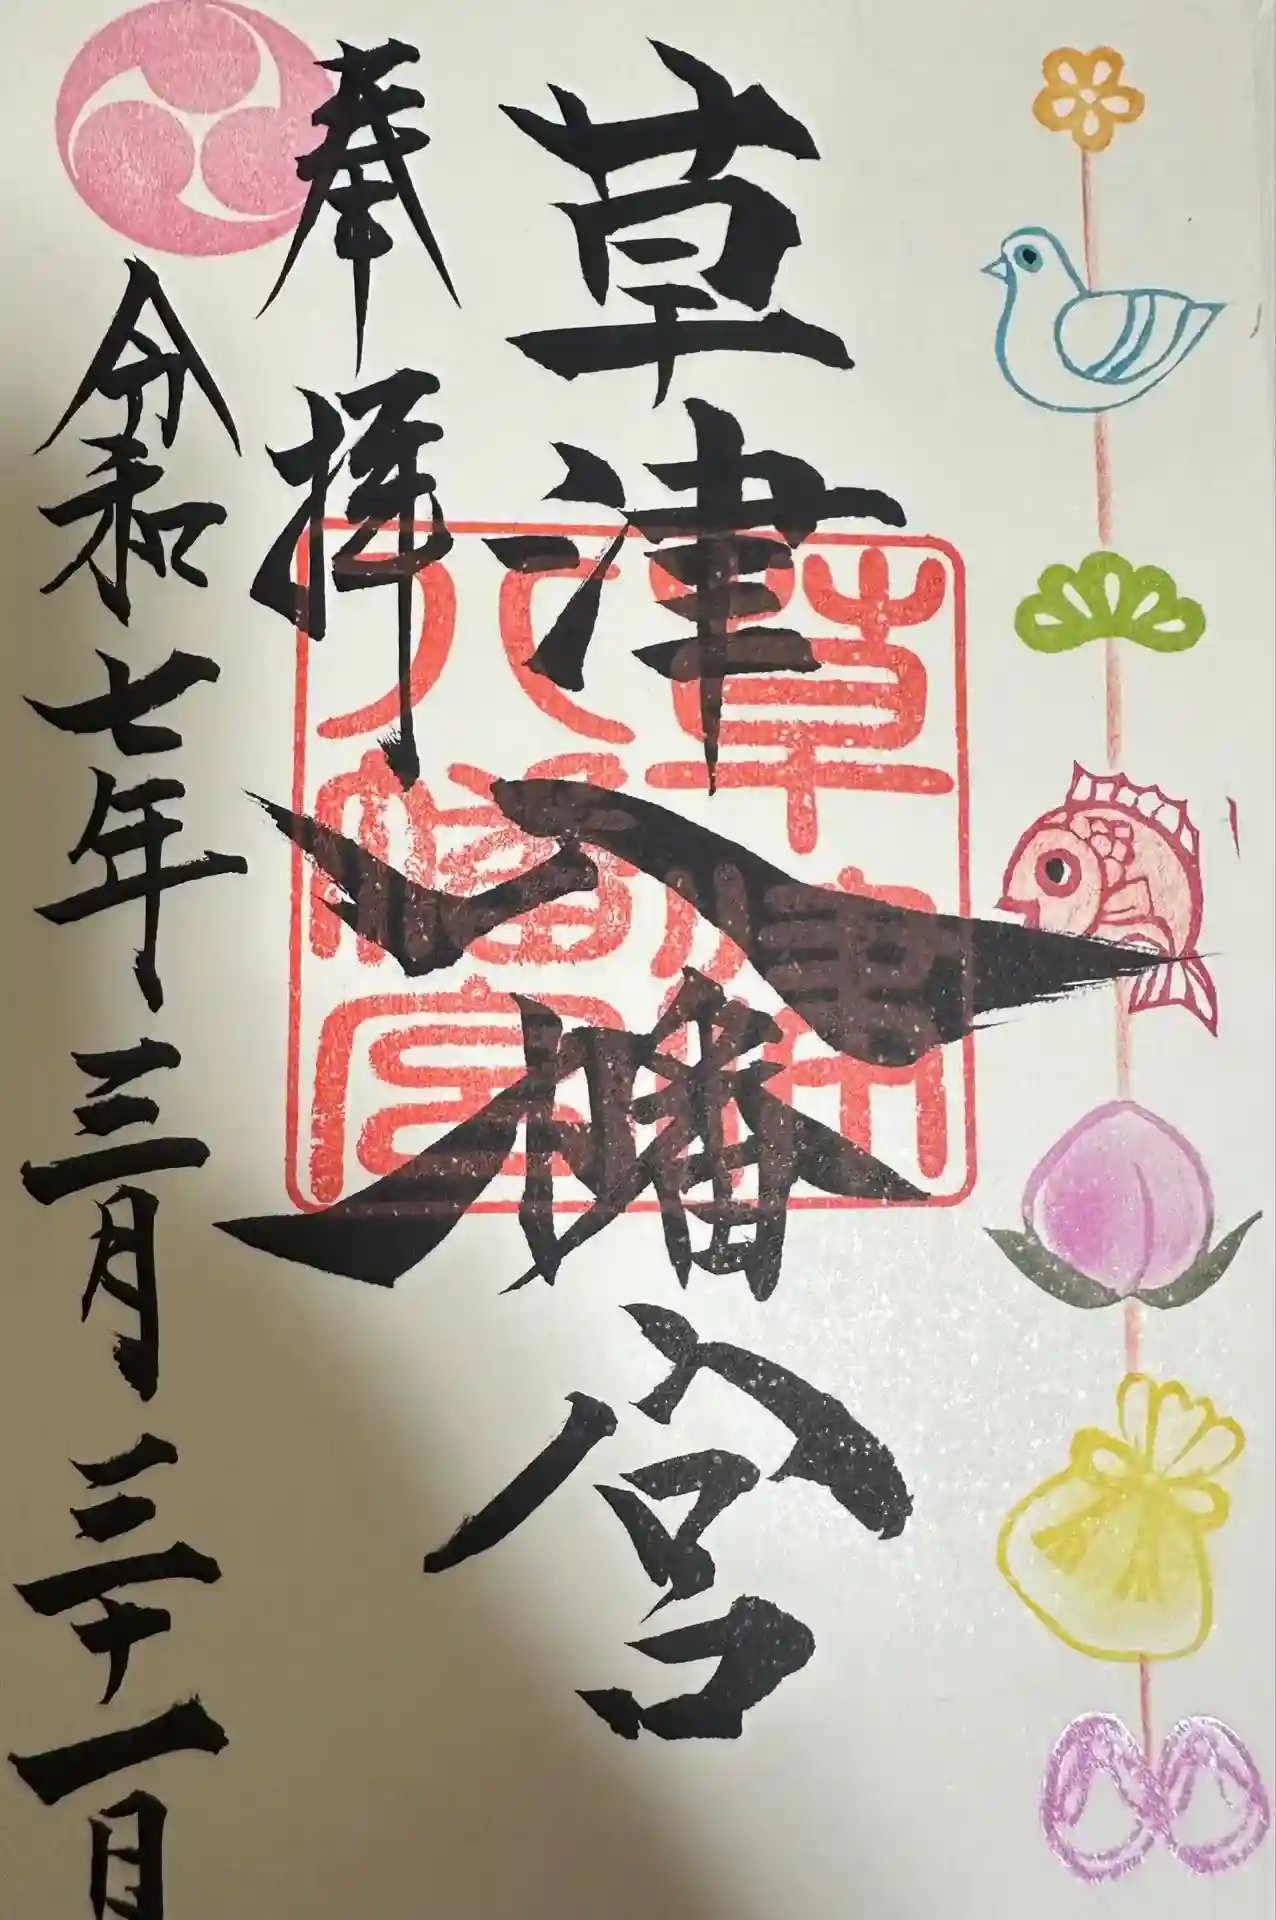 草津八幡宮
奉拝
令和七年三月三十一日
草津
八幡宮